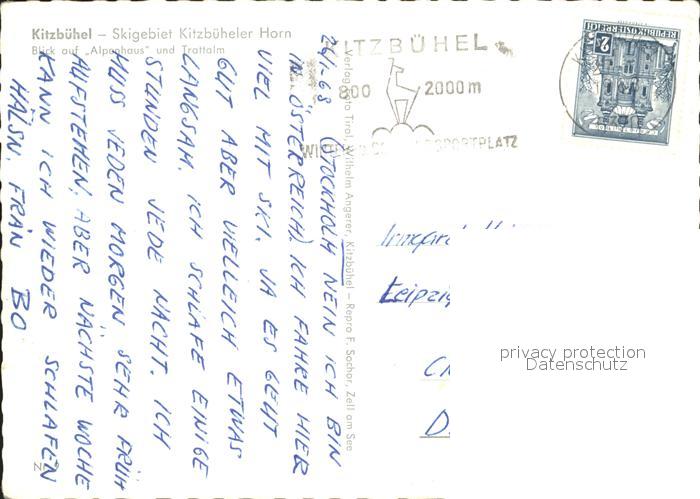 Kitzbühel – Skigebiet Kitzbüheler Horn
Blick auf „Alpenhaus" und Trattalm
KITZBÜHEL
800 2000 m
WINTER- SPORTPLATZ
REPUBLIK ÖSTERREICH
2
24/1-68 (STOCKHOLM NEIN ICH BIN
IN ÖSTERREICH). ICH FAHRE HIER
VIEL MIT SKI. JA ES GEHT
GUT ABER VIELLEICH ETWAS
LANGSAM. ICH SCHLAFE EINIGE
STUNDEN JEDE NACHT. ICH
MUSS JEDEN MORGEN SEHR FRÜH
AUFSTEHEN, ABER NÄCHSTE WOCHE
KANN ICH WIEDER SCHLAFEN
HÄLSN. FRÅN BO
Verlag Foto Tirol, Wilhelm Angerer, Kitzbühel – Repro F. Sochor, Zell am See
Irmgard
Leipzig
C
D.
privacy protection
Datenschutz